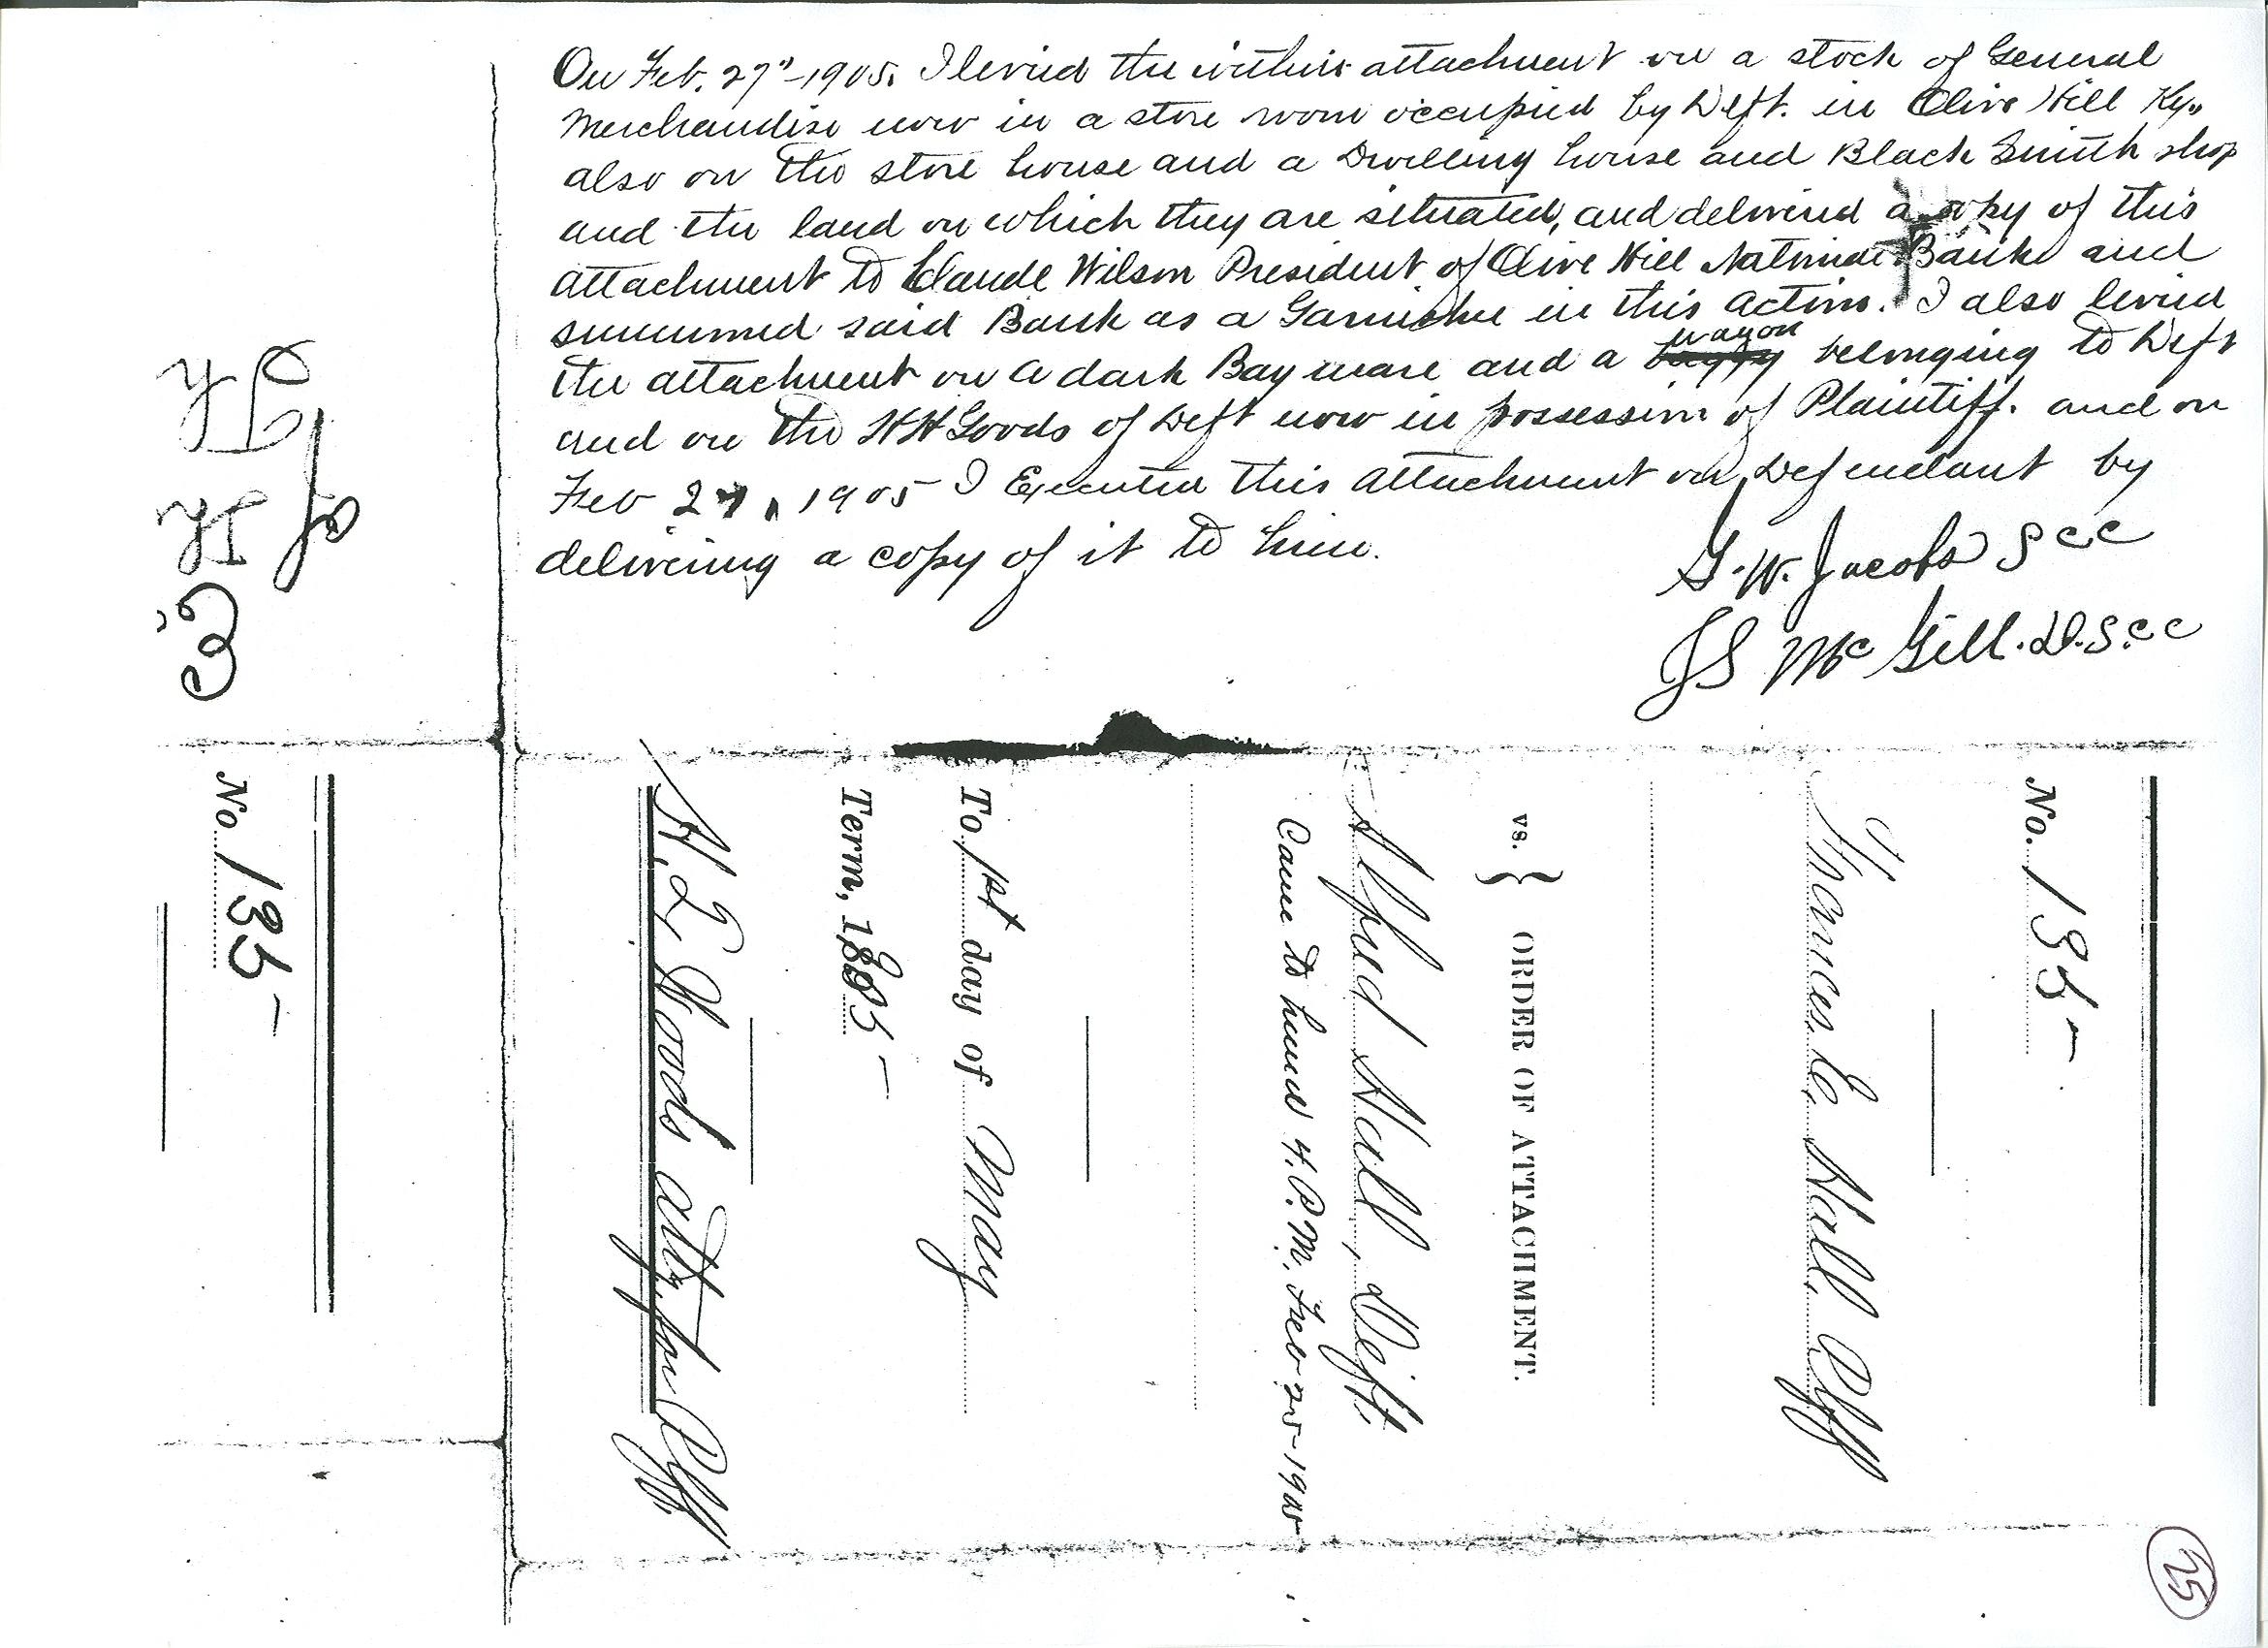 On Feb. 27"-1905. I levied the within attachment on a stock of General
Merchandise now in a store room occupied by Deft. in Olive Hill Ky.,
also on the store house and a Dwelling house and Black Smith shop
and the land on which they are situated, and delivered a copy of this
attachment to Claude Wilson President of Olive Hill National Bank and
summoned said Bank as a Garnishee in this action. I also levied
the attachment on a dark Bay mare and a wagon belonging to Deft
and on the HH Goods of Deft now in possession of Plaintiff. and on
Feb 27, 1905 I Executed this attachment on Defendant by
delivering a copy of it to him.
G. W. Jacobs S C C
JS McGill. D.S.C.C
No. 135-
Frances E. Hall, Plff
vs. } ORDER OF ATTACHMENT.
Alfred Hall, Deft.
Came to hand 4. P.M, Feb 25-1905
To 1st day of May
Term, 1905-
H. L. Woods atty for Plff
No. 135-
25